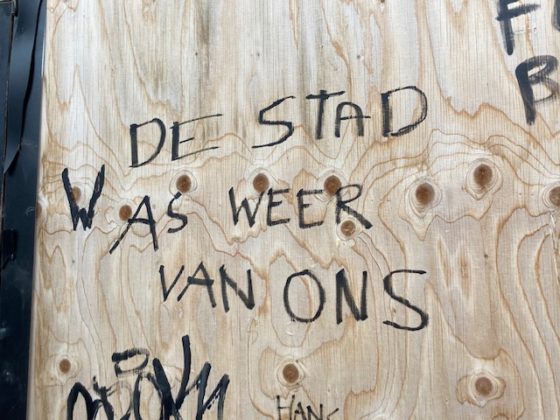 DE STAD
WAS WEER
VAN ONS
F
B
HANS